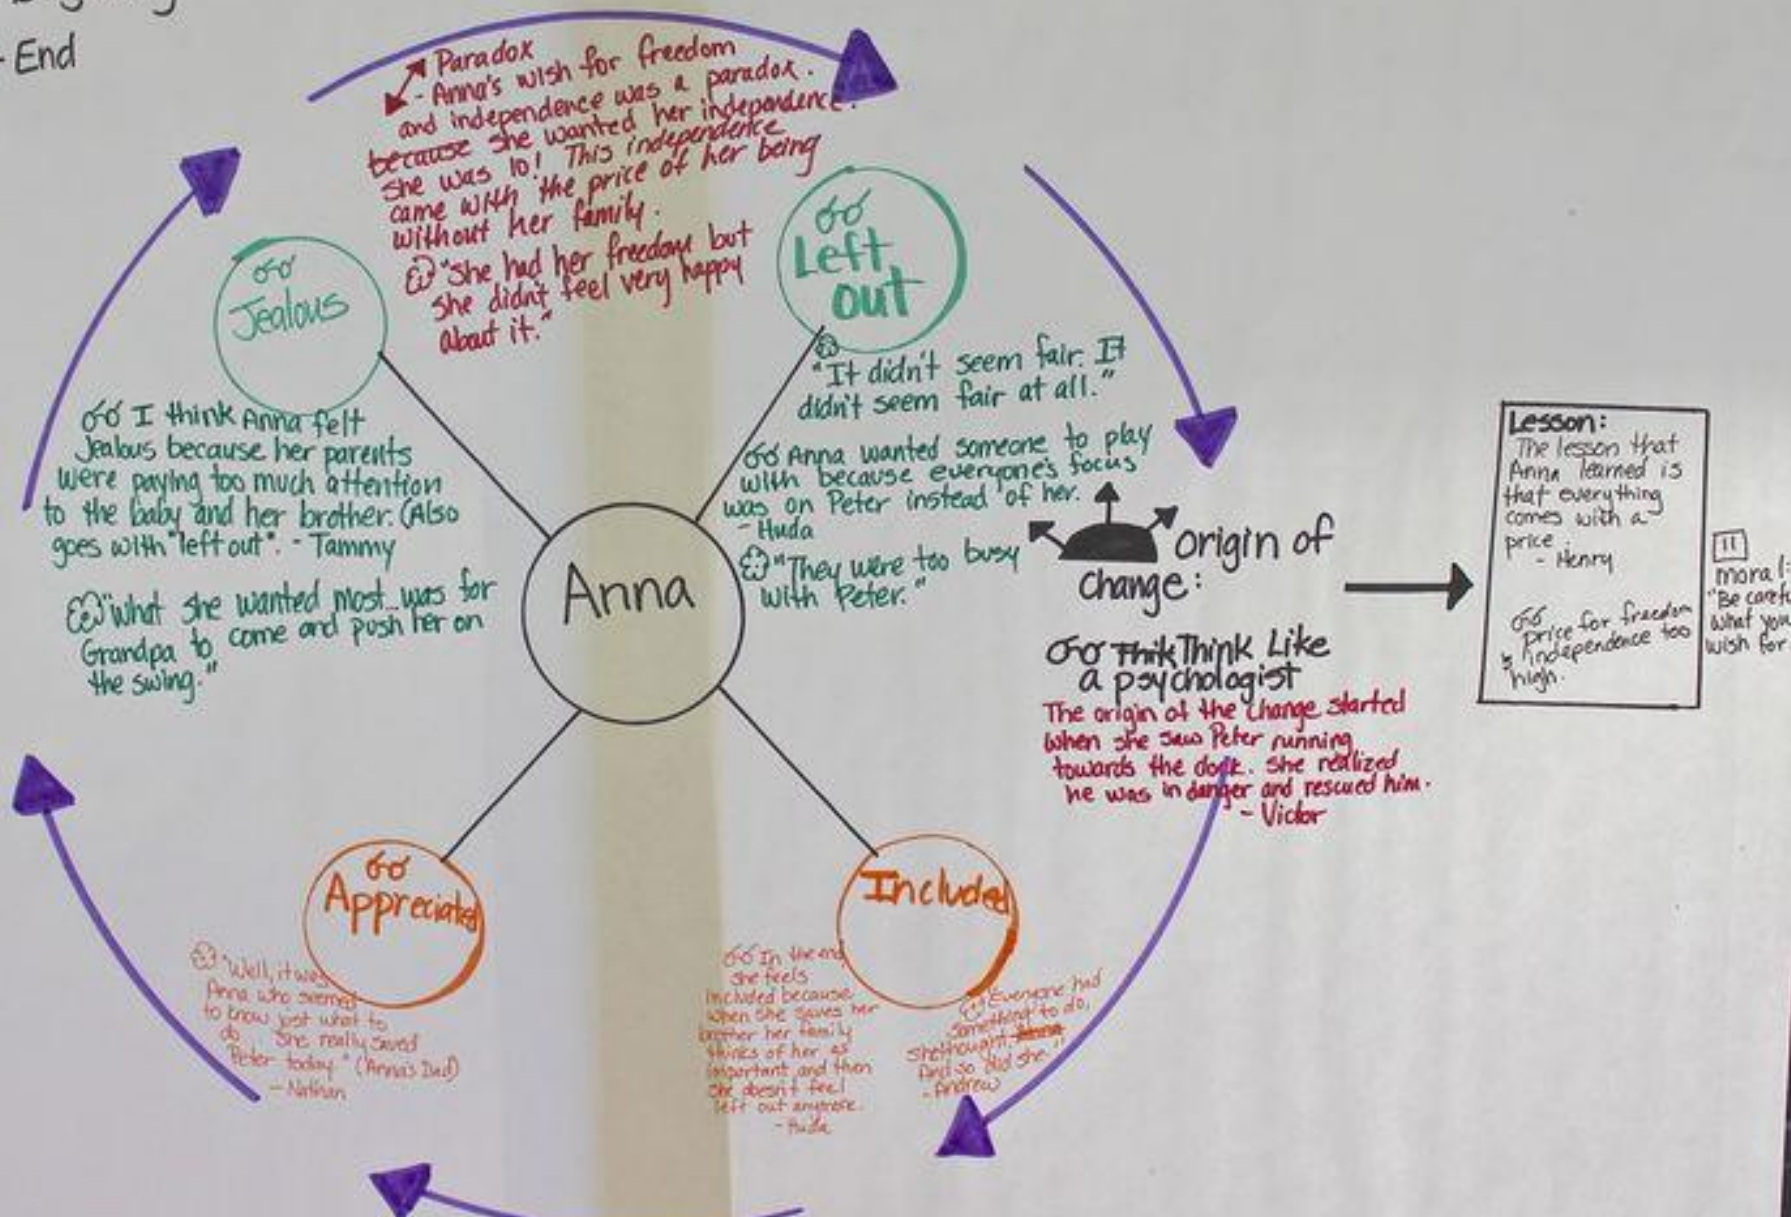 - End
Paradox
- Anna's wish for freedom
and independence was a paradox.
because she wanted her independence.
she was 10! This independence
came with the price of her being
without her family.
"She had her freedom but
she didn't feel very happy
about it."
Jealous
I think Anna felt
Jealous because her parents
were paying too much attention
to the baby and her brother. (Also
goes with "left out". - Tammy
"What she wanted most was for
Grandpa to come and push her on
the swing."
Left
out
"It didn't seem fair. It
didn't seem fair at all."
Anna wanted someone to play
with because everyone's focus
was on Peter instead of her.
- Huda
"They were too busy
with Peter."
Anna
origin of
change:
Thik Think Like
a psychologist
The origin of the change started
when she saw Peter running
towards the dock. She realized
he was in danger and rescued him.
- Victor
Lesson:
The lesson that
Anna learned is
that everything
comes with a
price.
- Henry
price for freedom
& independence too
high.
11
moral:
"Be
what you
wish for
Appreciated
"Well, it was
Anna who seemed
to know just what to
do. She really saved
Peter today." (Anna's Dad)
- Nathan
Included
In the end,
she feels
included because
when she saves her
brother her family
thinks of her as
important and then
she doesn't feel
left out anymore.
- Huda
"Everyone had
something to do,
she thought. Anna
And so did she."
- Andrew